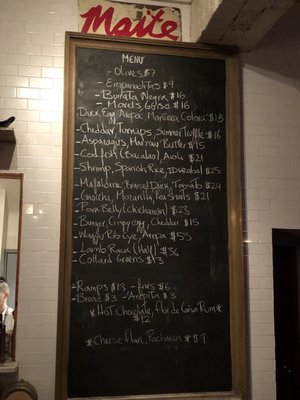 Maite
MENU
- Olives $7
- Empanaditas $9
- Burrata Negra $16
- Morels, $16
Duck Egg Arepa, Manteca Colorá $13
- Cheddar Turnips, Summer Truffle $16
- Asparagus, Marrow Butter $15
- Cod fish (Bacalao), Aioli $21
- Shrimp, Spanish Rice, Idiazabal $25
- Mafaldine, Braised Duck, Tomato $24
- Gnocchi, Mozzarella, Pea Shoots $21
- Pork Belly (Chicharron) $23
- Burger, Crispy egg, Cheddar $15
- Wagyu Rib Eye, Arepa $55
- Lamb Rack (Half) $36
- Collard Greens $13
- Ramps $13 - Fries $6
- Bread $3 - Arepita $3
*Hot chocolate, Flor de Caña Rum*
$12
*Cheese flan, Pacharan* $9